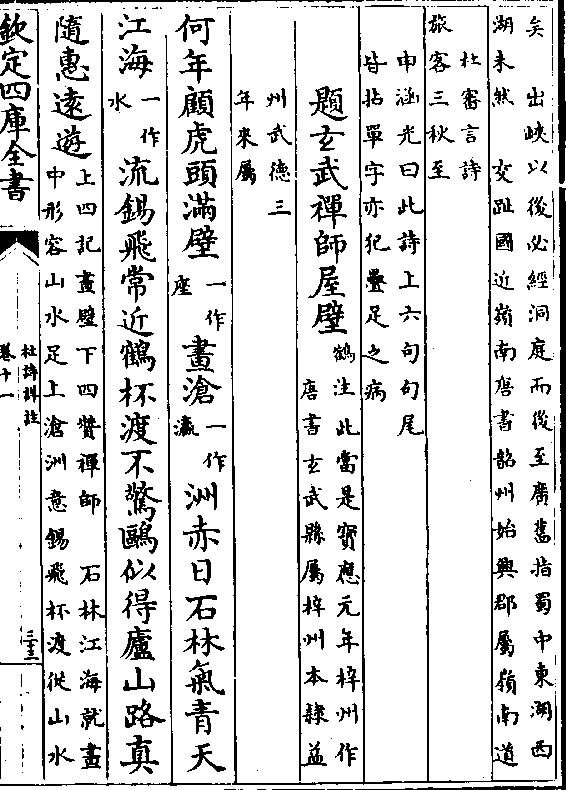 矣　出峽以後必經洞庭而後至廣舊指蜀中東湖西
湖未然　交趾國近嶺南唐書韶州始興郡屬嶺南道
杜審言詩
旅客三秋至
申涵光曰此詩上六句句尾
皆拈單字亦犯疊足之病
題玄武禪師屋壁
鶴注此當是寶應元年梓州作
唐書玄武縣屬梓州本隸益
州武德三
年來屬
何年顧虎頭滿壁一作座畫滄一作瀛洲赤日石林氣青天
江海一作水流錫飛常近鶴杯渡不驚鷗似得廬山路真
隨惠遠遊
上四記畫壁下四贊禪師　石林江海就畫
中形容山水足上滄洲意錫飛杯渡從山水
欽定四庫全書
杜詩詳註
卷十一
三十三